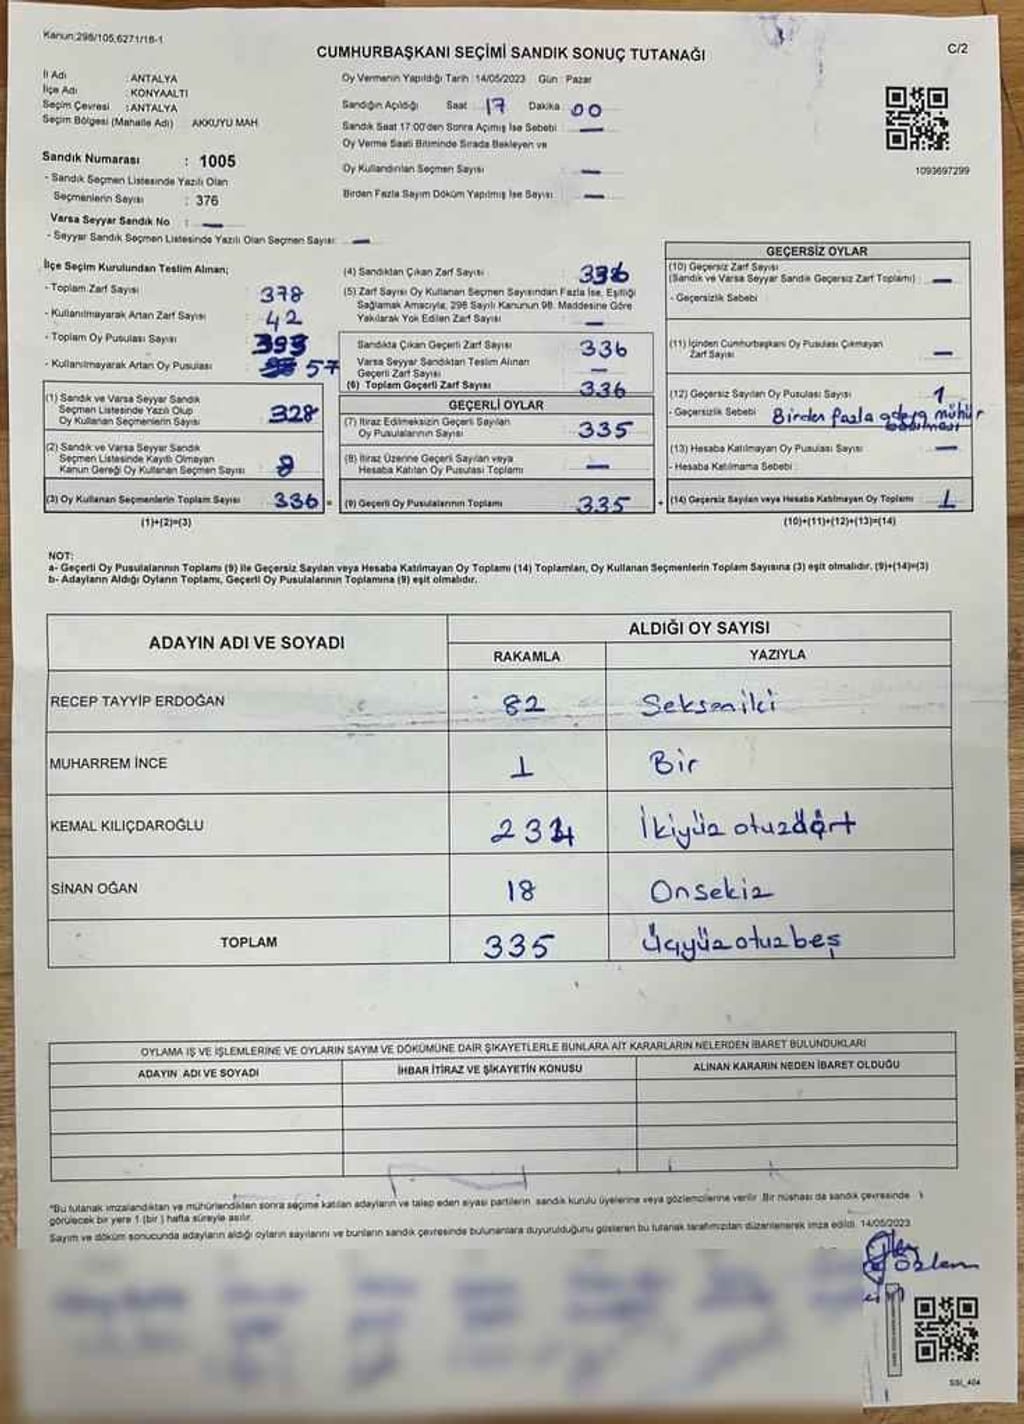 Kanun;298/105,6271/18-1
CUMHURBAŞKANI SEÇİMİ SANDIK SONUÇ TUTANAĞI
C/2
İl Adı : ANTALYA
İlçe Adı : KONYAALTI
Seçim Çevresi : ANTALYA
Seçim Bölgesi (Mahalle Adı) AKKUYU MAH
Oy Vermenin Yapıldığı Tarih : 14/05/2023 Gün : Pazar
Sandığın Açıldığı Saat 17 Dakika 00
Sandık Saat 17:00'den Sonra Açımış İse Sebebi —
Oy Verme Saati Bitiminde Sırada Bekleyen ve
Oy Kullandırılan Seçmen Sayısı —
Birden Fazla Sayım Döküm Yapılmış İse Sayısı —
1093697299
Sandık Numarası : 1005
- Sandık Seçmen Listesinde Yazılı Olan
Seçmenlerin Sayısı : 376
Varsa Seyyar Sandık No : —
- Seyyar Sandık Seçmen Listesinde Yazılı Olan Seçmen Sayısı: —
İlçe Seçim Kurulundan Teslim Alınan;
- Toplam Zarf Sayısı : 378
- Kullanılmayarak Artan Zarf Sayısı : 42
- Toplam Oy Pusulası Sayısı : 393
- Kullanılmayarak Artan Oy Pusulası : 57
(1) Sandık ve Varsa Seyyar Sandık
Seçmen Listesinde Yazılı Olup
Oy Kullanan Seçmenlerin Sayısı : 328
(2) Sandık ve Varsa Seyyar Sandık
Seçmen Listesinde Kayıtlı Olmayan
Kanun Gereği Oy Kullanan Seçmen Sayısı : 8
(3) Oy Kullanan Seçmenlerin Toplam Sayısı : 336 =
(1)+(2)=(3)
(4) Sandıktan Çıkan Zarf Sayısı : 336
(5) Zarf Sayısı Oy Kullanan Seçmen Sayısından Fazla İse, Eşitliği
Sağlamak Amacıyla, 298 Sayılı Kanunun 98. Maddesine Göre
Yakılarak Yok Edilen Zarf Sayısı : —
Sandıkta Çıkan Geçerli Zarf Sayısı : 336
Varsa Seyyar Sandıktan Teslim Alınan
Geçerli Zarf Sayısı : —
(6) Toplam Geçerli Zarf Sayısı : 336
GEÇERLİ OYLAR
(7) İtiraz Edilmeksizin Geçerli Sayılan
Oy Pusulalarının Sayısı : 335
(8) İtiraz Üzerine Geçerli Sayılan veya
Hesaba Katılan Oy Pusulası Toplamı : —
(9) Geçerli Oy Pusulalarının Toplamı : 335 +
GEÇERSİZ OYLAR
(10) Geçersiz Zarf Sayısı
(Sandık ve Varsa Seyyar Sandık Geçersiz Zarf Toplamı) : —
- Geçersizlik Sebebi :
(11) İçinden Cumhurbaşkanı Oy Pusulası Çıkmayan
Zarf Sayısı : —
(12) Geçersiz Sayılan Oy Pusulası Sayısı : 1
- Geçersizlik Sebebi : Birden fazla adaya mühür
basılması
(13) Hesaba Katılmayan Oy Pusulası Sayısı : —
- Hesaba Katılmama Sebebi :
(14) Geçersiz Sayılan veya Hesaba Katılmayan Oy Toplamı : 1
(10)+(11)+(12)+(13)=(14)
NOT:
a- Geçerli Oy Pusulalarının Toplamı (9) ile Geçersiz Sayılan veya Hesaba Katılmayan Oy Toplamı (14) Toplamları, Oy Kullanan Seçmenlerin Toplam Sayısına (3) eşit olmalıdır. (9)+(14)=(3)
b- Adayların Aldığı Oyların Toplamı, Geçerli Oy Pusulalarının Toplamına (9) eşit olmalıdır.
ADAYIN ADI VE SOYADI ALDIĞI OY SAYISI
RAKAMLA YAZIYLA
RECEP TAYYİP ERDOĞAN 82 Sekseniki
MUHARREM İNCE 1 Bir
KEMAL KILIÇDAROĞLU 234 İkiyüz otuzdört
SİNAN OĞAN 18 Onsekiz
TOPLAM 335 Üçyüz otuz beş
OYLAMA İŞ VE İŞLEMLERİNE VE OYLARIN SAYIM VE DÖKÜMÜNE DAİR ŞİKAYETLERLE BUNLARA AİT KARARLARIN NELERDEN İBARET BULUNDUKLARI
ADAYIN ADI VE SOYADI İHBAR İTİRAZ VE ŞİKAYETİN KONUSU ALINAN KARARIN NEDEN İBARET OLDUĞU
*Bu tutanak imzalandıktan ve mühürlendikten sonra seçime katılan adayların ve talep eden siyasi partilerin sandık kurulu üyelerine veya gözlemcilerine verilir. Bir nüshası da sandık çevresinde
görülecek bir yere 1 (bir) hafta süreyle asılır.
Sayım ve döküm sonucunda adayların aldığı oyların sayılarını ve bunların sandık çevresinde bulunanlara duyurulduğunu gösteren bu tutanak tarafımızdan düzenlenerek imza edildi. 14/05/2023
Özlem
SSI_404